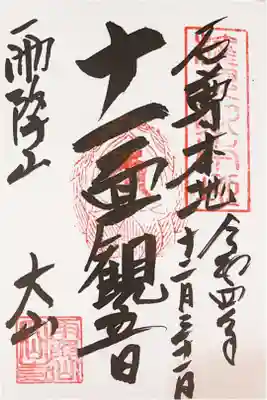 石尊本地
令和四年
十二月三十一日
十一面観音
雨降山
大山